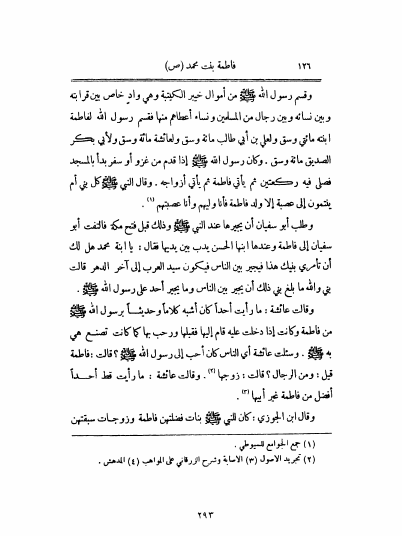 ١٢٦ فاطمة بنت محمد (ص)
وقسم رسول الله ﷺ من أموال خيبر الكتيبة وهي وادٍ خاص بين قرابته
وبين نسائه وبين رجال من المسلمين ونساء أعطاهم منها فقسم رسول الله لفاطمة
ابنته مائتي وسق ولعلي بن أبي طالب مائة وسق ولعائشة مائة وسق ولأبي بكر
الصديق مائة وسق . وكان رسول الله ﷺ إذا قدم من غزو أو سفر بدأ بالمسجد
فصلى فيه ركعتين ثم يأتي فاطمة ثم يأتي أزواجه . وقال النبي ﷺ كل بني أم
ينتمون إلى عصبة إلا ولد فاطمة فأنا وليهم وأنا عصبتهم (١) .
وطلب أبو سفيان أن يجيرها عند النبي ﷺ وذلك قبل فتح مكة فالتفت أبو
سفيان إلى فاطمة وعندها ابنها الحسن يدب بين يديها فقال : يا ابنة محمد هل لك
أن تأمري بنيك هذا فيجير بين الناس فيكون سيد العرب إلى آخر الدهر قالت
بني والله ما بلغ بني ذلك أن يجير بين الناس وما يجير أحد على رسول الله ﷺ .
وقالت عائشة : ما رأيت أحداً كان أشبه كلاماً وحديثاً برسول الله ﷺ
من فاطمة وكانت إذا دخلت عليه قام إليها فقبلها ورحب بها كما كانت تصنع هي
به ﷺ . وسئلت عائشة أي الناس كان أحب إلى رسول الله ﷺ ؟ قالت : فاطمة
قيل : ومن الرجال ؟ قالت : زوجها (٢) . وقالت عائشة : ما رأيت قط أحداً
أفضل من فاطمة غير أبيها (٣) .
وقال ابن الجوزي : كان للنبي ﷺ بنات فضلتهن فاطمة وزوجات سبقتهن
(١) جمع الجوامع للسيوطي .
(٢) تجريد الاصول (٣) الاصابة وشرح الزرقاني على المواهب (٤) المدهش .
٢٩٣